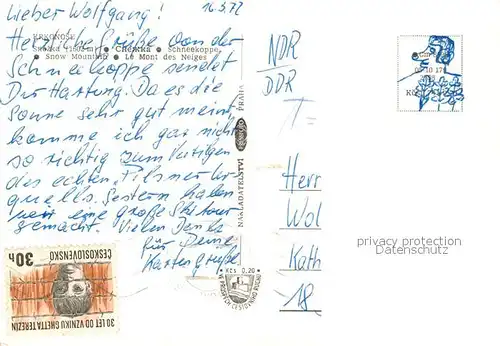 Lieber Wolfgang! 16.3.72
Herzliche Grüße von der
Schneekoppe sendet
Dir Hartung. Da es die
Sonne sehr gut meint,
komme ich gar nicht
so richtig zum Vertilgen
des echten Pilsner Ur-
quells. Gestern haben
wir eine große Skitour
gemacht. Vielen Dank
für Deine
Kartengrüße
KRKONOŠE
Sněžka (1602 m) • Снежка • Schneekoppe
• Snow Mountain • Le Mont des Neiges
NAKLADATELSTVÍ PRAHA
Kčs 0,20
NDR
DDR
Herr
Wol
Kath
18
privacy protection
Datenschutz
30h
ČESKOSLOVENSKO
30 LET OD VZNIKU GHETTA TEREZÍN